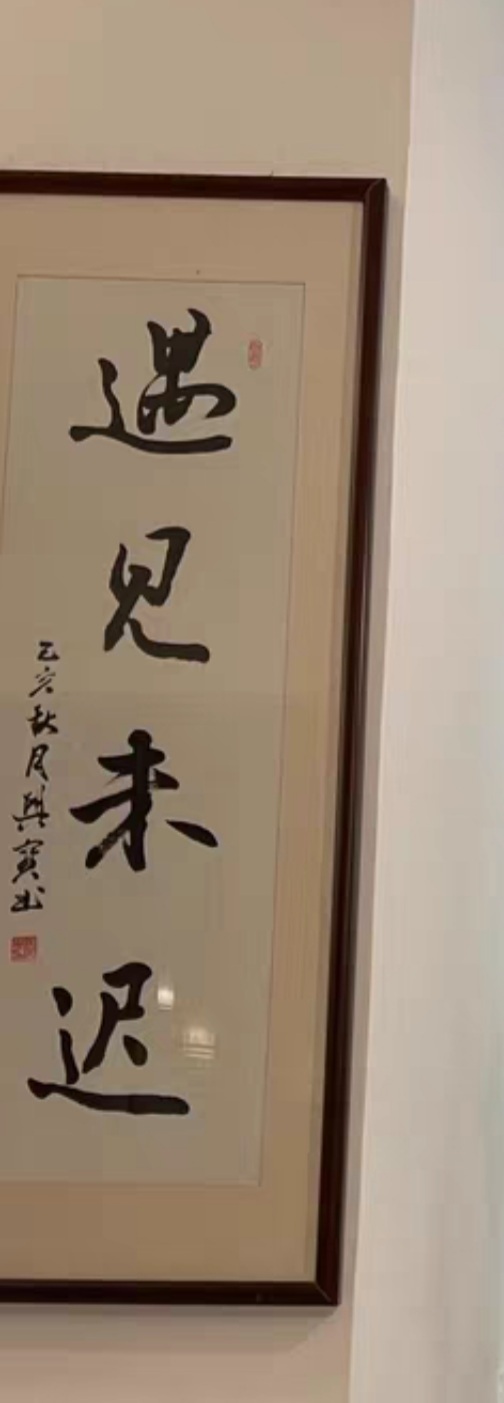 遇见未迟
乙亥秋月兴宝书